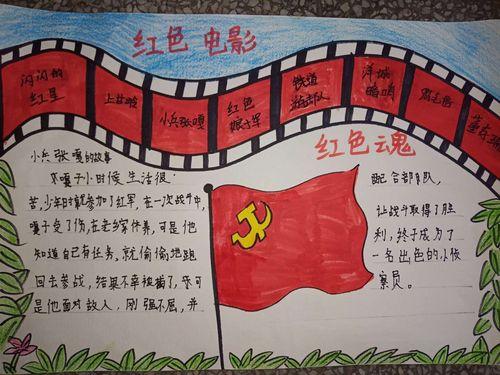 红色 电影
闪闪的
红星
上甘岭
小兵张嘎
红色
娘子军
铁道
游击队
洋城
暗哨
董存瑞
红色云魂
小兵张嘎的故事
嘎子小时候生活很
苦,少年时就参加了红军,在一次战斗中,
嘎子受了伤,在老乡家休养,可是他
知道自己有任务,就偷偷地跑
回去参战,结果不幸被捕了,
是他面对敌人,刚强不屈,并
配合部队,
让战斗取得了胜
利,终于成为了
一名出色的小侦
察员。